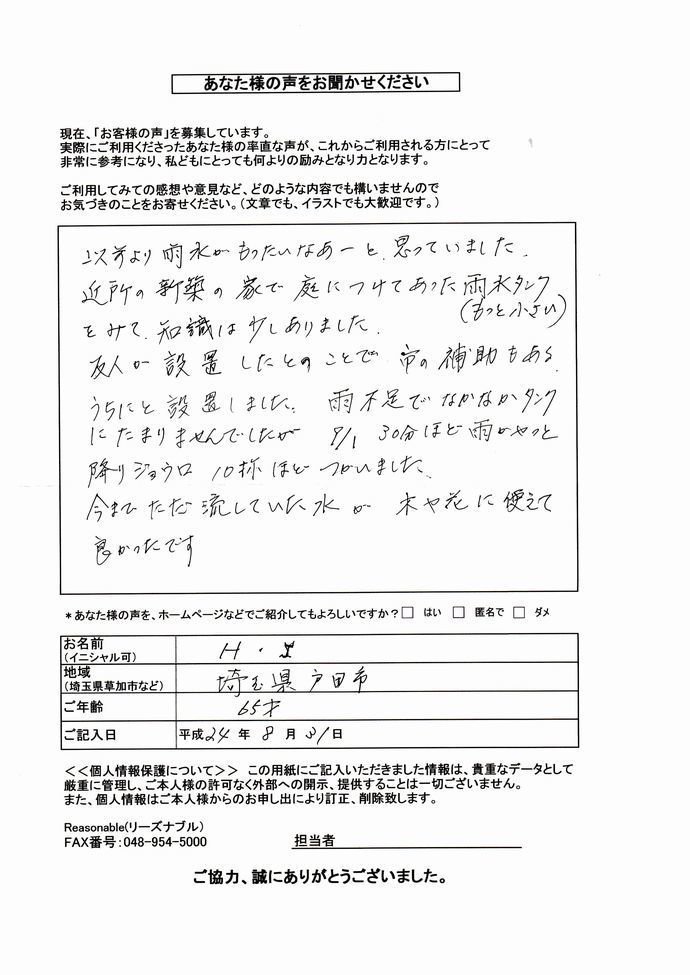 あなた様の声をお聞かせください
現在、「お客様の声」を募集しています。
実際にご利用くださったあなた様の率直な声が、これからご利用される方にとって
非常に参考になり、私どもにとっても何よりの励みとなり力となります。
ご利用してみての感想や意見など、どのような内容でも構いませんので
お気づきのことをお寄せください。（文章でも、イラストでも大歓迎です。）
以前より雨水がもったいなあーと思っていました。
近所の新築の家で庭につけてあった雨水タンク
(もっと小さい)
をみて、知識は少しありました。
友人が設置したとのことで市の補助もある
うちにと設置しました。雨不足でなかなかタンク
にたまりませんでしたが 9/1 30分ほど雨がやっと
降りジョウロ 10杯ほどつかいました。
今までただ流していた水が 木や花に使えて
良かったです
*あなた様の声を、ホームページなどでご紹介してもよろしいですか？□ はい □ 匿名で □ ダメ
お名前 H・I
(イニシャル可)
地域 埼玉県戸田市
(埼玉県草加市など)
ご年齢 65才
ご記入日 平成24年 8月 31日
＜＜個人情報保護について＞＞ この用紙にご記入いただきました情報は、貴重なデータとして
厳重に管理し、ご本人様の許可なく外部への開示、提供することは一切ございません。
また、個人情報はご本人様からのお申し出により訂正、削除致します。
Reasonable(リーズナブル)
FAX番号：048-954-5000 担当者
ご協力、誠にありがとうございました。